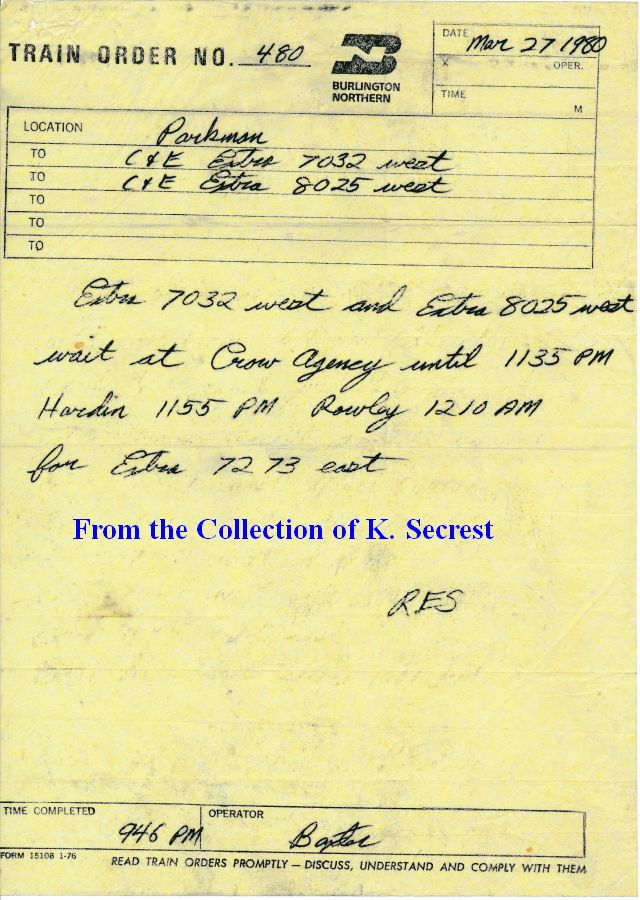 TRAIN ORDER NO. 480
BURLINGTON
NORTHERN
DATE Mar 27 1980
X OPER.
TIME
M
LOCATION Parkman
TO C & E Extra 7032 west
TO C & E Extra 8025 west
TO
TO
TO
Extra 7032 west and Extra 8025 west
wait at Crow Agency until 1135 PM
Hardin 1155 PM Rowley 1210 AM
for Extra 7273 east
From the Collection of K. Secrest
RES
TIME COMPLETED 946 PM
OPERATOR Baxter
FORM 15108 1-76
READ TRAIN ORDERS PROMPTLY — DISCUSS, UNDERSTAND AND COMPLY WITH THEM